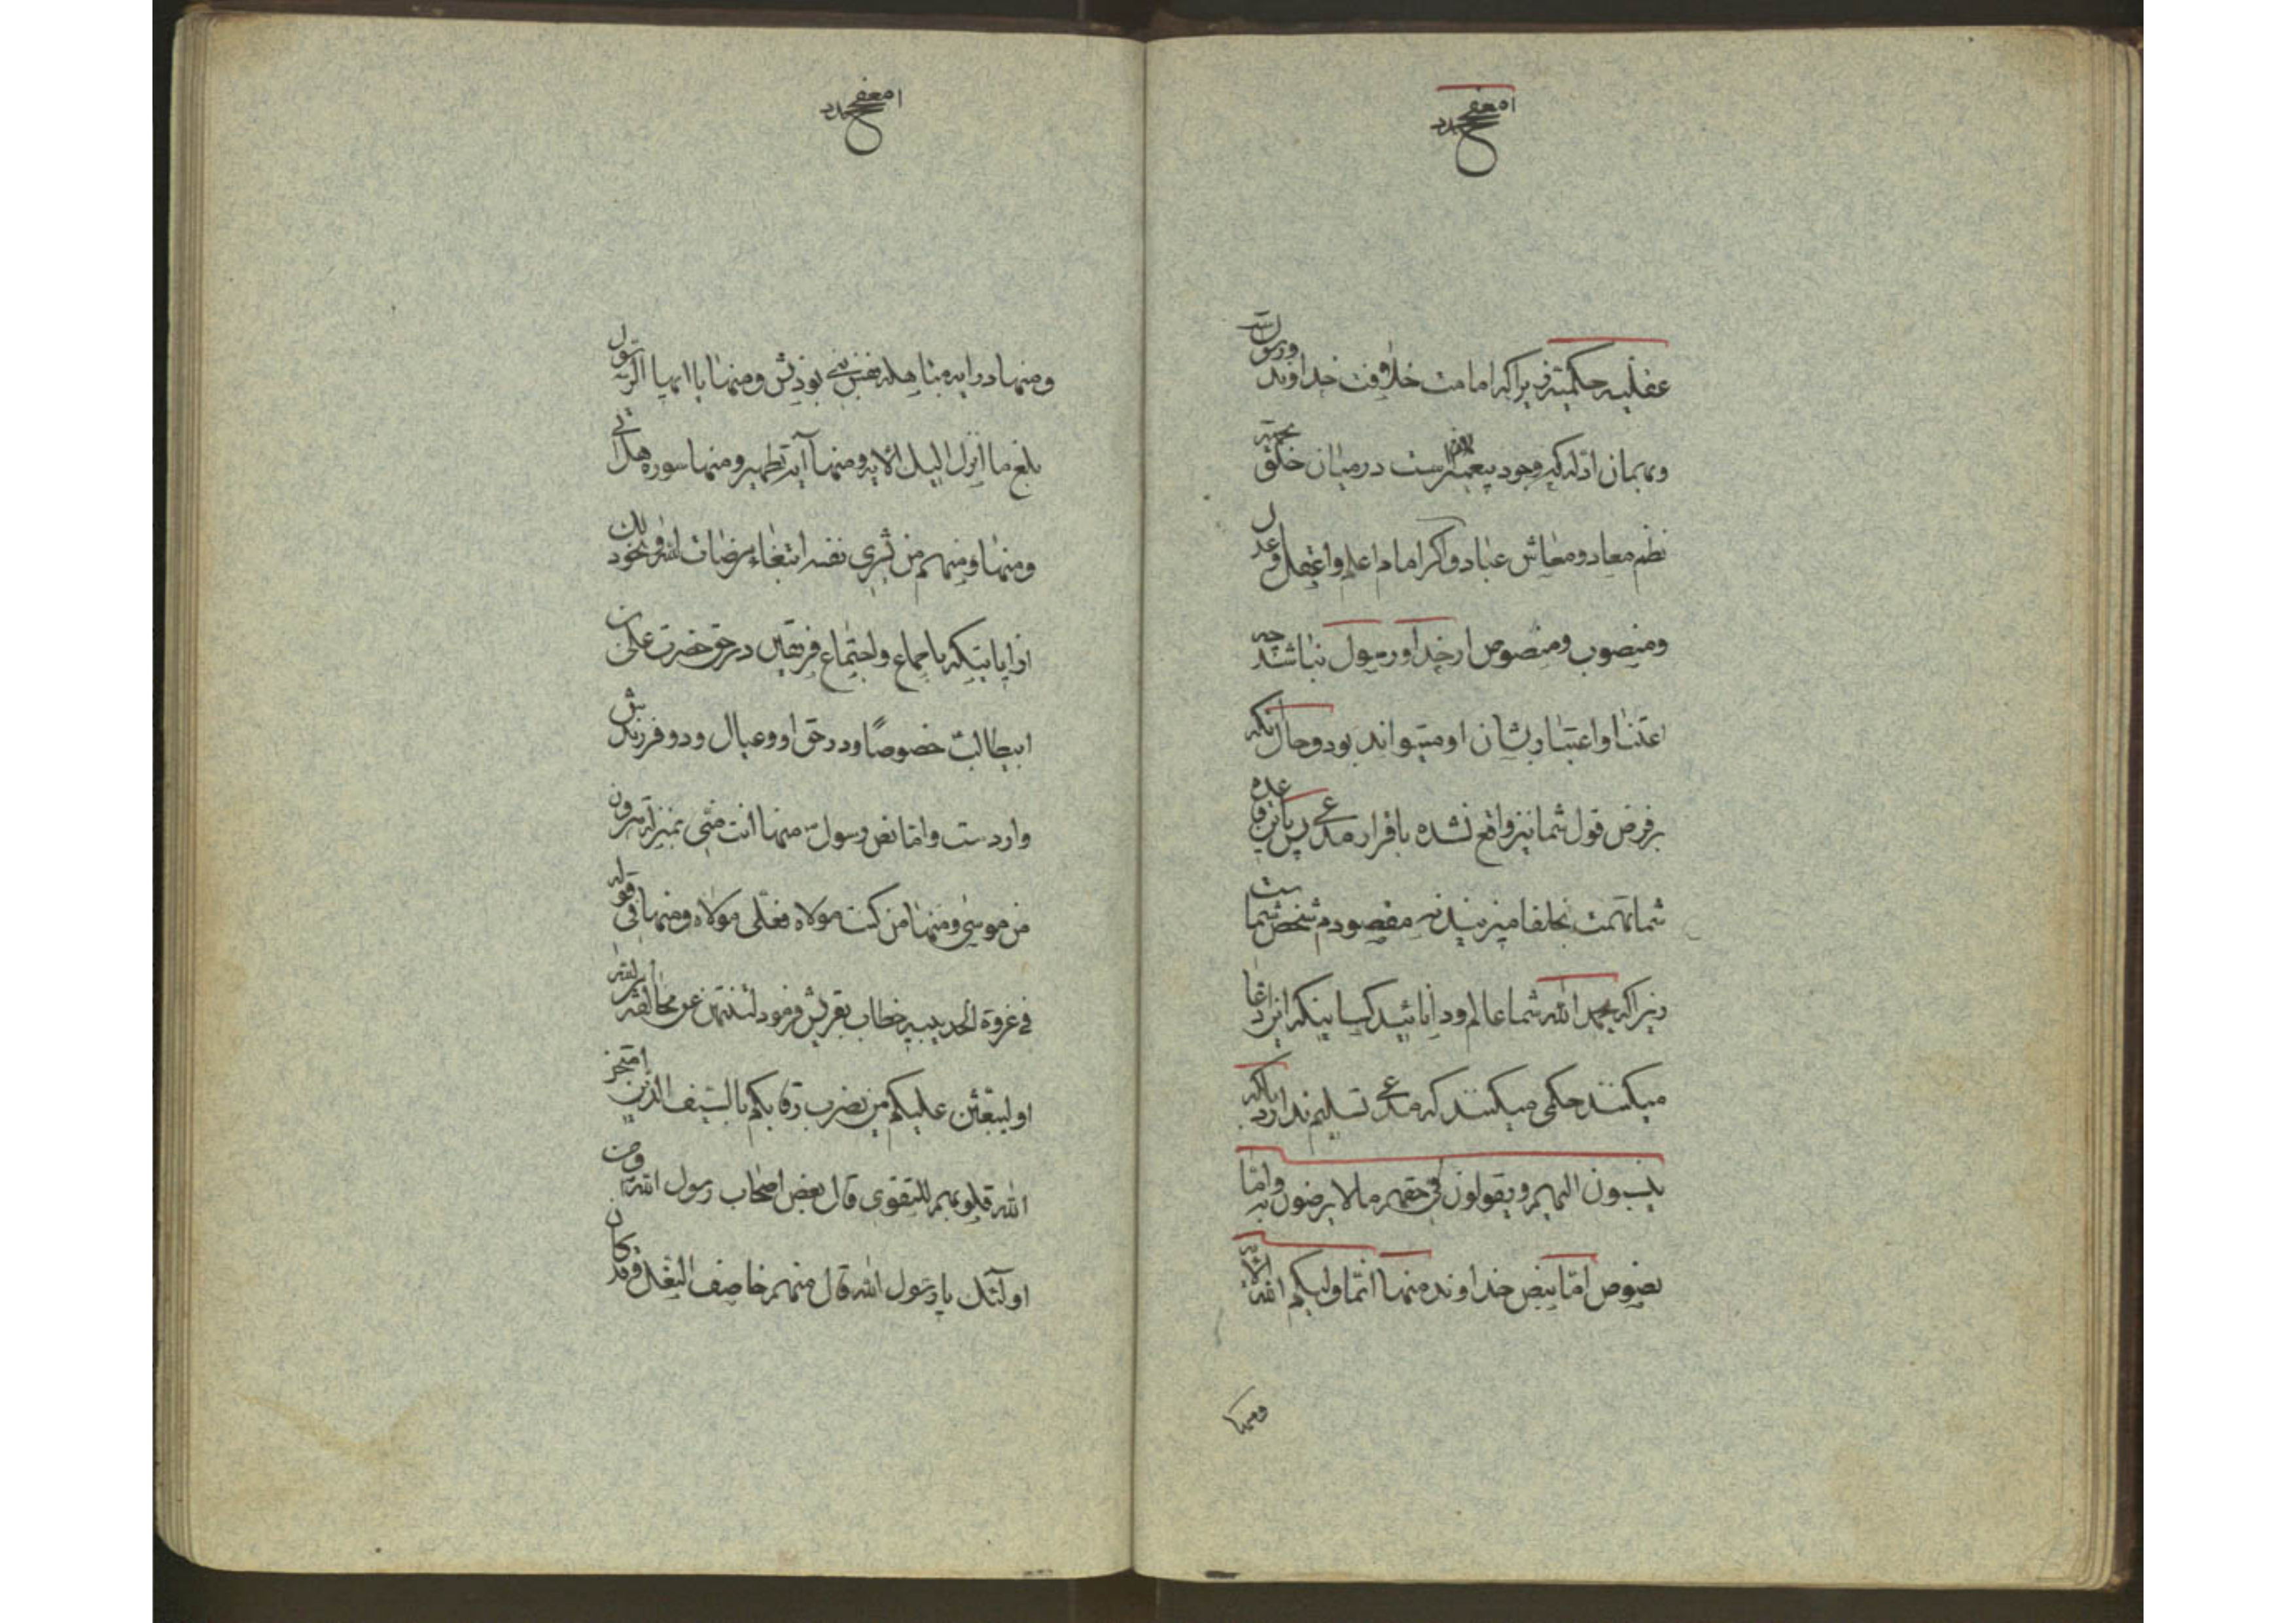 عقلیه حکمیه زیرا که امامت خلافت خداوند و رسول است
و بهمان ادله که وجود پیغمبر لازم است در میان خلق بجهة
نظم معاد و معاش عباد و اگر امام اعلم و اعقل و عدل
و منصوب و منصوص از خدا و رسول نباشد چه
اعتنا و اعتبار بشان او میتواند بود و حال آنکه
بر فرض قول شما نیز واقع نشده باقرار مدعی پس باین قاعده
شما تهمت بخلفا میزنید نه مقصودم شخص شما ست
زیرا که بحمد الله شما عالم و دانائید کسانیکه این ادعا
میکنند حکمی میکنند که مدعی تسلیم ندارد بلکه
ینسبون الیهم و یقولون فی حقهم ما لا یرضون به و اما
نصوص اما بنص خداوند منها انما ولیکم الله الآیه
و منها
و منها در ایه مباهله نفس نبی بودنش و منها یا ایها الرسول
بلغ ما انزل الیک الآیه و منها آیه تطهیر و منها سوره هل اتی
و منها و منهم من یشری نفسه ابتغاء مرضات الله و نحو ذلک
از ایاتیکه باجماع و اجتماع فریقین در حق حضرت علی بن
ابیطالب خصوصا و در حق او و عیال و دو فرزندش
وارد ست و اما نص رسول منها انت منی بمنزله هرون
من موسی و منها من کنت مولاه فعلی مولاه و منها فی قوله
فی غزوة الحدیبیه خطاب بقریش فرمود لتنتهن عن مخالفة امر الله
او لیبعثن علیکم من یضرب رقابکم بالسیف الذین امتحن
الله قلوبهم للتقوی قال بعض اصحاب رسول الله و من
اولئک یا رسول الله قال منهم خاصف النعل و قد کان